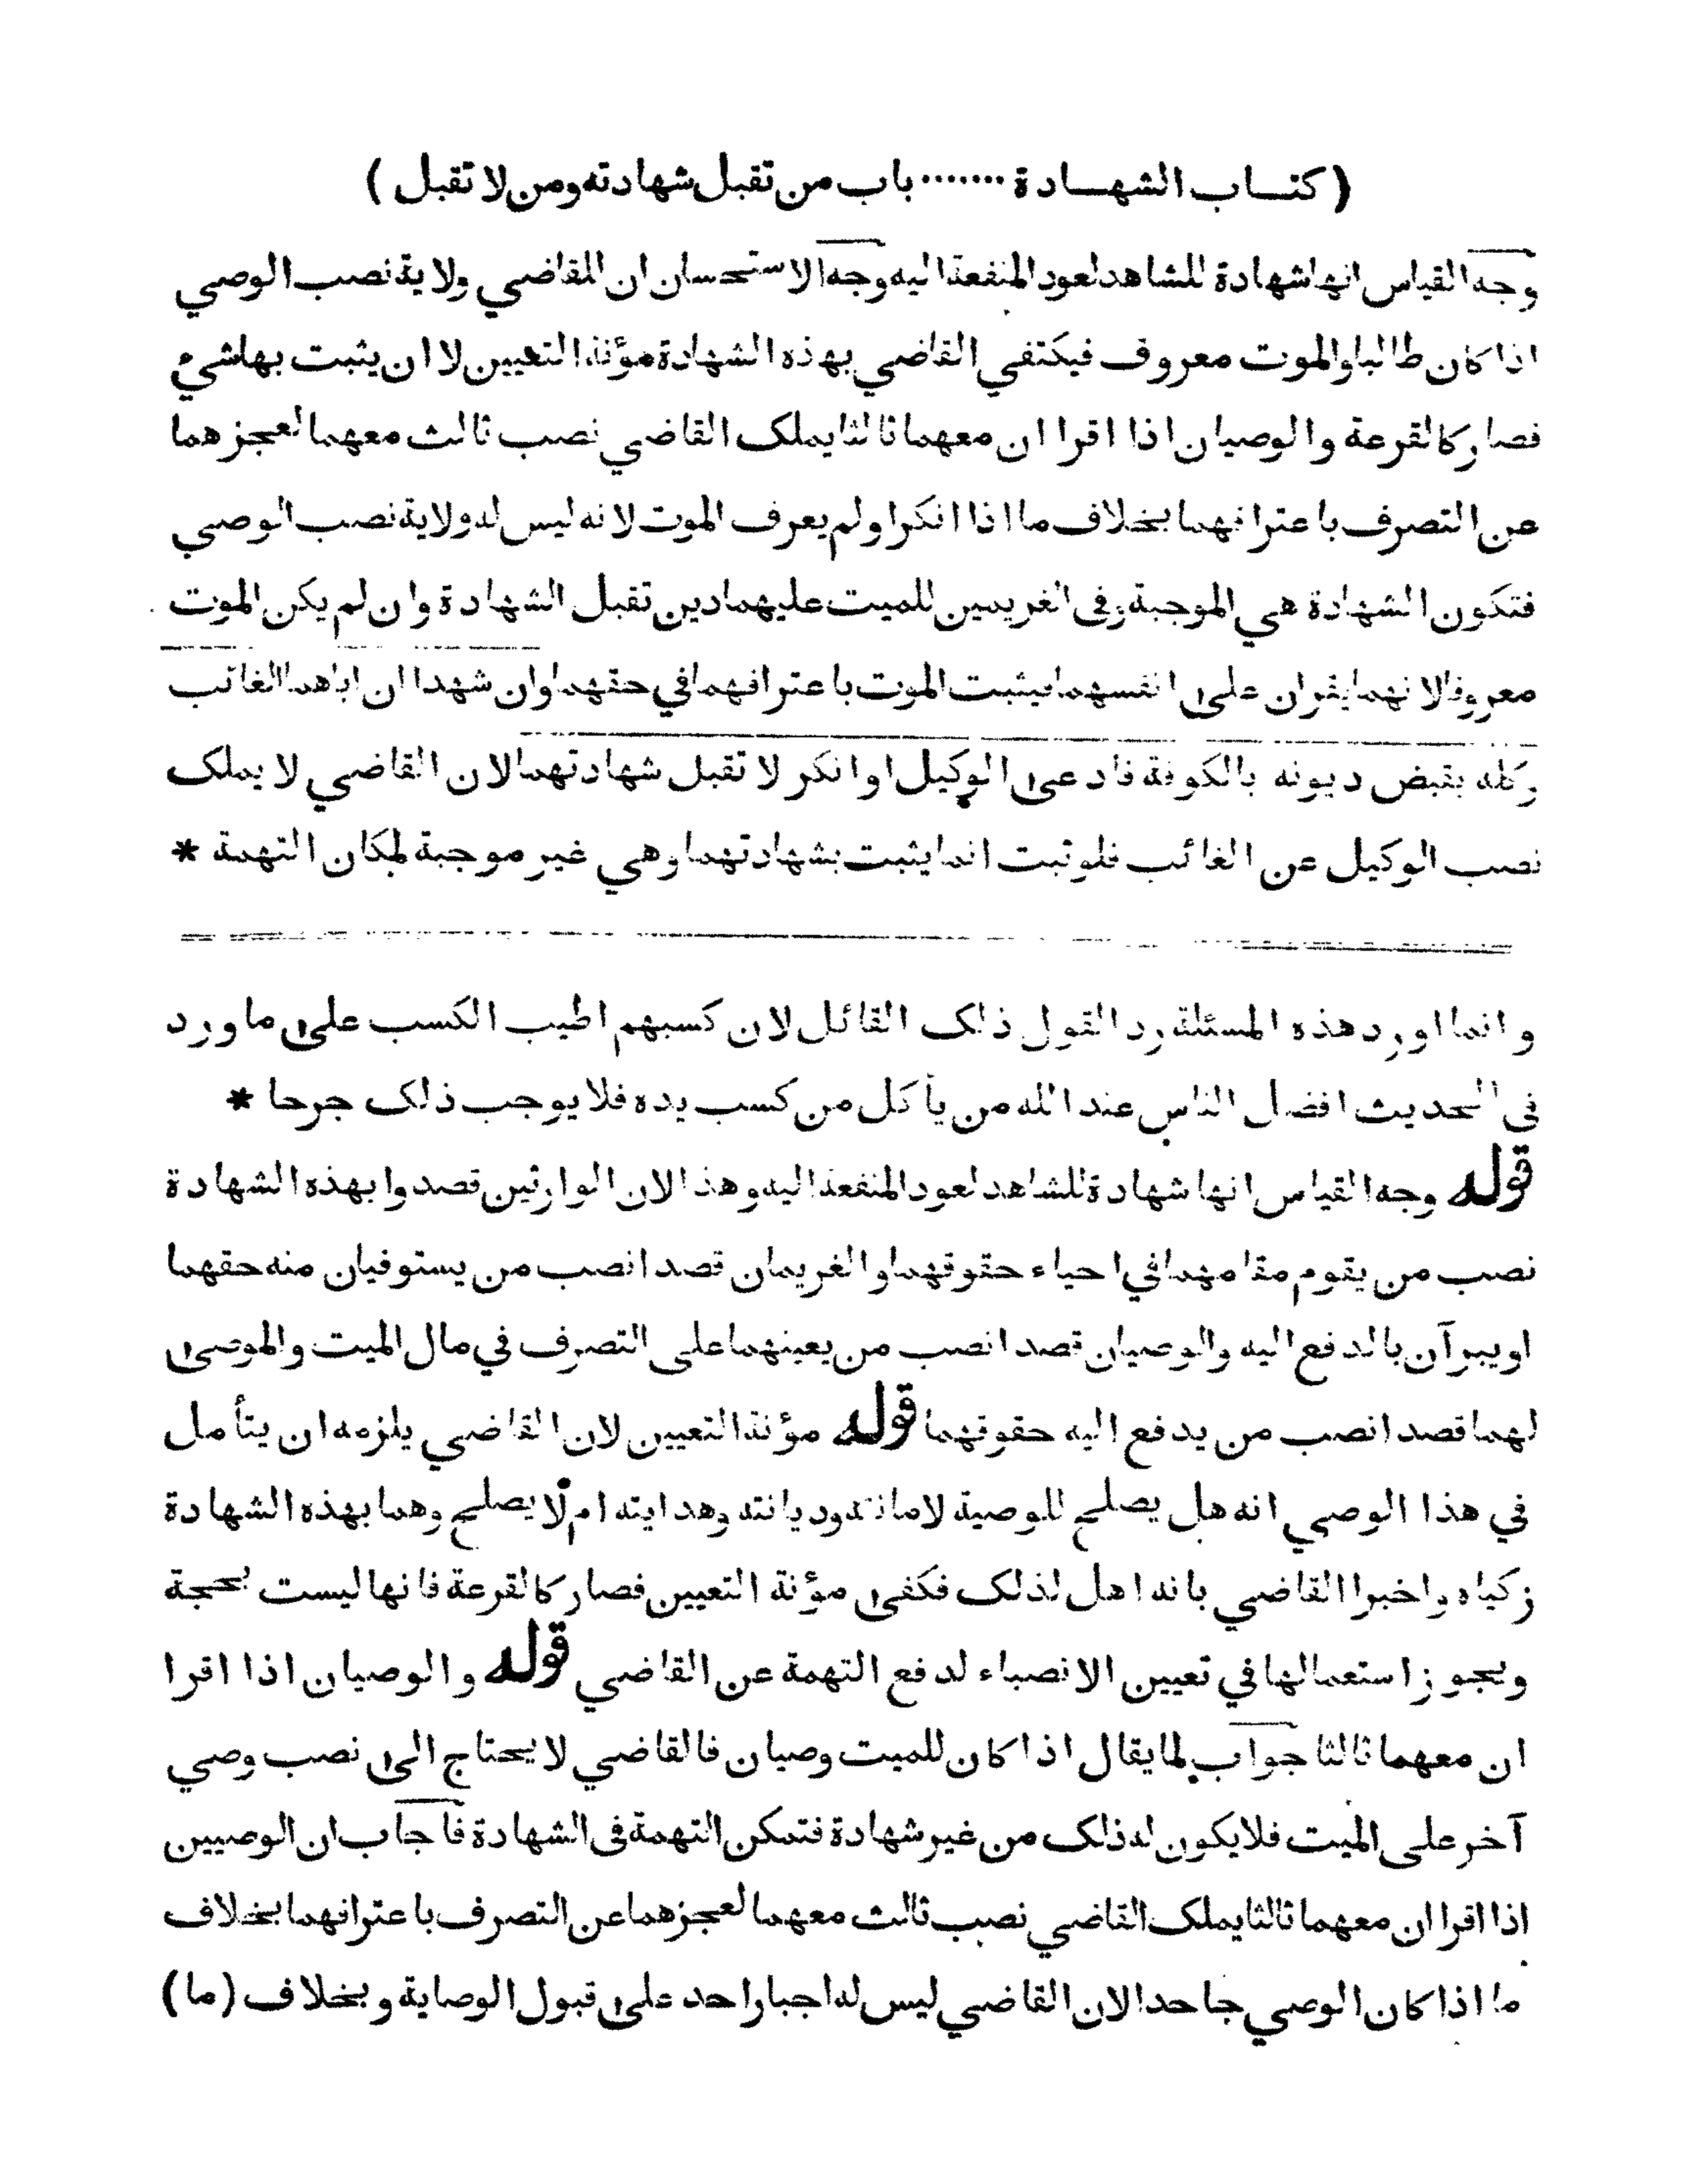 ( كتـاب الشهـادة ....... باب من تقبل شهادته ومن لا تقبل )
وجه القياس انها شهادة للشاهد لعود المنفعة اليه وجه الاستحسان ان للقاضي ولاية نصب الوصي
اذا كان طالبا والموت معروف فيكتفي القاضي بهذه الشهادة مؤنة التعيين لا ان يثبت بها شيء
فصار كالقرعة والوصيان اذا اقرا ان معهما ثالثا يملك القاضي نصب ثالث معهما لعجزهما
عن التصرف باعترافهما بخلاف ما اذا انكرا ولم يعرف الموت لانه ليس له ولاية نصب الوصي
فتكون الشهادة هي الموجبة وفى الغريمين للميت عليهما دين تقبل الشهادة وان لم يكن الموت
معروفا لانهما يقران على انفسهما فيثبت الموت باعترافهما في حقهما وان شهدا ان اباهما الغائب
وكله بقبض ديونه بالكوفة فادعى الوكيل او انكر لا تقبل شهادتهما لان القاضي لا يملك
نصب الوكيل عن الغائب فلو ثبت انما يثبت بشهادتهما وهي غير موجبة لمكان التهمة *
وانما اورد هذه المسئلة رد القول ذلك القائل لان كسبهم اطيب الكسب على ما ورد
فى الحديث افضل الناس عند الله من يأكل من كسب يده فلا يوجب ذلك جرحا *
قوله وجه القياس انها شهادة للشاهد لعود المنفعة اليه وهذا لان الوارثين قصدوا بهذه الشهادة
نصب من يقوم مقامهما في احياء حقوقهما والغريمان قصدا نصب من يستوفيان منه حقهما
او يبرآن بالدفع اليه والوصيان قصدا نصب من يعينهما على التصرف في مال الميت والموصى
لهما قصدا نصب من يدفع اليه حقوقهما قوله مؤنة التعيين لان القاضي يلزمه ان يتأمل
في هذا الوصي انه هل يصلح للوصية لامانته وديانته وهدايته ام لا يصلح وهما بهذه الشهادة
زكياه واخبرا القاضي بانه اهل لذلك فكفى مؤنة التعيين فصار كالقرعة فانها ليست بحجة
ويجوز استعمالها في تعيين الانصباء لدفع التهمة عن القاضي قوله والوصيان اذا اقرا
ان معهما ثالثا جواب لما يقال اذا كان للميت وصيان فالقاضي لا يحتاج الى نصب وصي
آخر على الميت فلا يكون له ذلك من غير شهادة فتمكن التهمة فى الشهادة فاجاب ان الوصيين
اذا اقرا ان معهما ثالثا يملك القاضي نصب ثالث معهما لعجزهما عن التصرف باعترافهما بخلاف
ما اذا كان الوصي جاحدا لان القاضي ليس له اجبار احد على قبول الوصاية وبخلاف (ما)